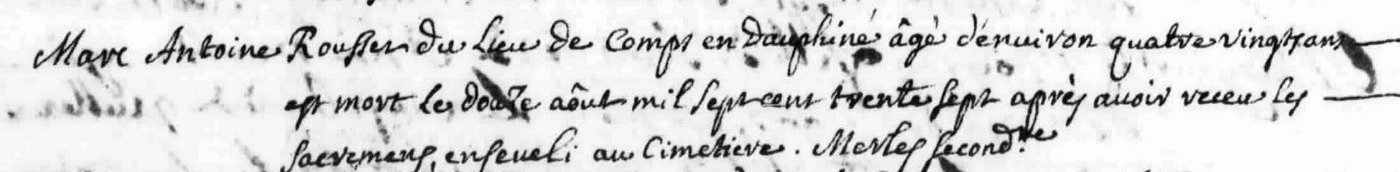 Marc Antoine Rousset du Lieu de Comps en Dauphiné âgé d'enuiron quatre vingts ans
est mort le douze aôut mil sept cent trente sept après auoir receu les
sacremens, enseveli au Cimetiere. Merles second.re